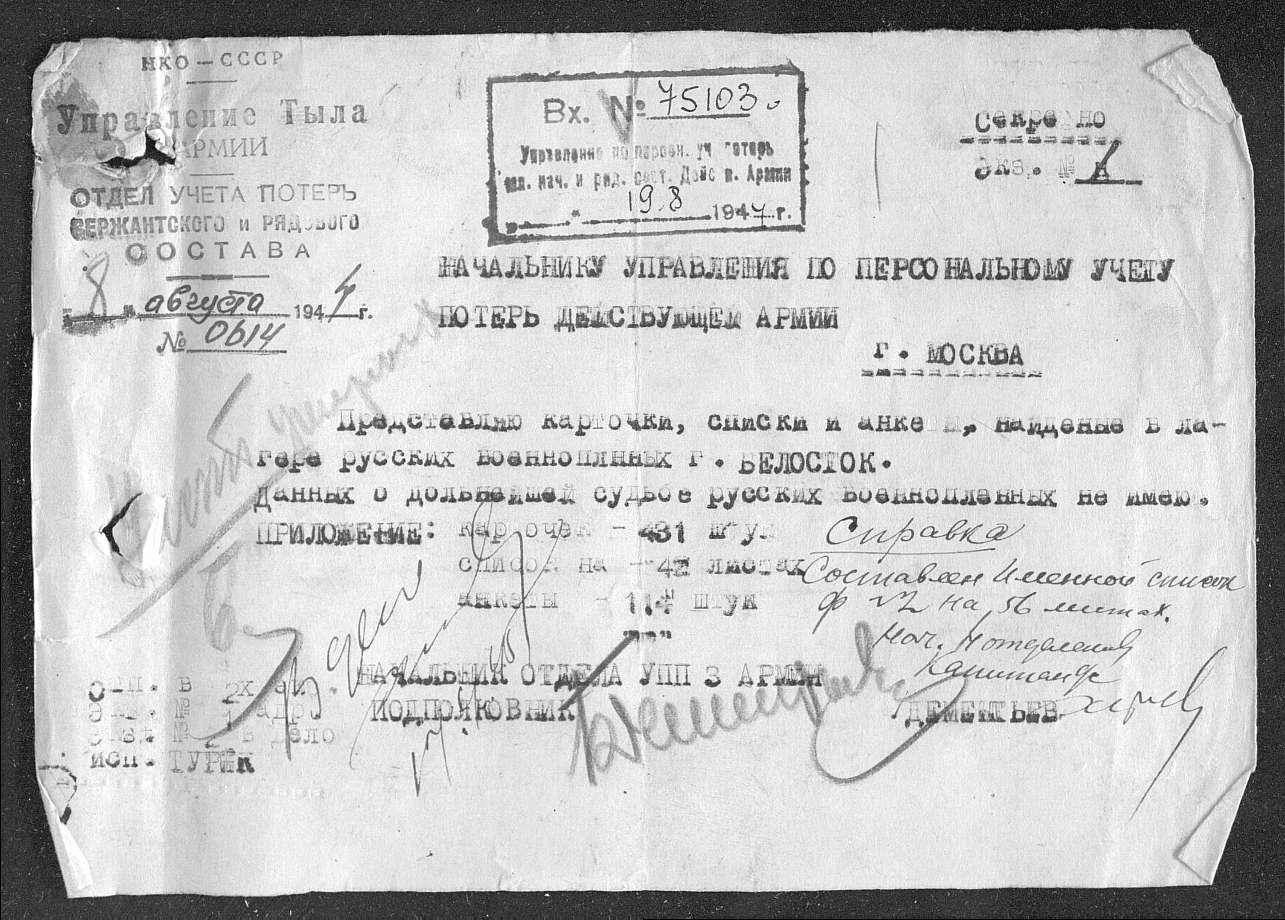 НКО — СССР
Управление Тыла
АРМИИ
ОТДЕЛ УЧЕТА ПОТЕРЬ
СЕРЖАНТСКОГО и РЯДОВОГО
СОСТАВА
"8" августа 1944 г.
№ 0614
Вх. № 75103
Управление по персон. уч. потерь
нач. и ряд. сост. Дейс в. Армии
19.8 1944 г.
Секретно
Экз. № 1
НАЧАЛЬНИКУ УПРАВЛЕНИЯ ПО ПЕРСОНАЛЬНОМУ УЧЕТУ
ПОТЕРЬ ДЕЙСТВУЮЩЕЙ АРМИИ
г. МОСКВА
Представляю карточки, списки и анкеты, найденые в ла-
гере русских военнопленных г. БЕЛОСТОК.
Данных о дольнейшей судьбе русских военнопленных не имею.
ПРИЛОЖЕНИЕ: карточек - 431 штук
список на - листах
анкеты - 114 штук
Справка
Составлен Именной список
ф 22 на 56 листах.
Нач. 1 отделения
Капитан
В дело
НАЧАЛЬНИК ОТДЕЛА УПП 3 АРМИИ
ПОДПОЛКОВНИК /ДЕМЕНТЬЕВ
Отп. в 2х экз.
Экз. № 1 адр.
Экз. № 2 в дело
исп. ТУРЕК